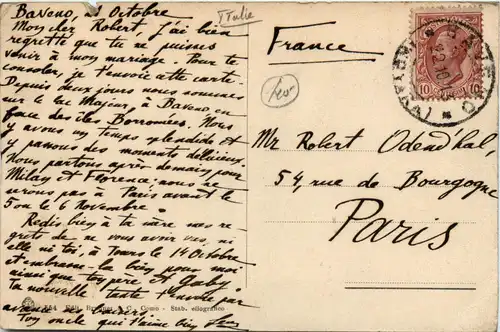 Baveno, 21 Octobre
Italie
Mon cher Robert, j'ai bien
regretté que tu ne puisses
venir à mon mariage. Pour te
consoler, je t'envoie cette carte.
Depuis deux jours nous sommes
sur le lac Majeur, à Baveno en
face des îles Borromées. Nous
y avons un temps splendide et
y passons des moments délicieux.
Nous partons après-demain pour
Milan et Florence, nous ne
serons pas à Paris avant le
5 ou le 6 Novembre.
Redis bien à ta mère nos re-
grets de ne vous avoir vus, ni
elle ni toi, à Tours le 14 Octobre
et embrasse-la bien pour moi
ainsi que ton père et Gaby.
Ta nouvelle tante t'envoie par
avance ses
Ton oncle qui t'aime bien
Edit. Como - Stab. eliografico
France
BAVENO
10 10
Mr Robert Odend'hal,
54, rue de Bourgogne
Paris